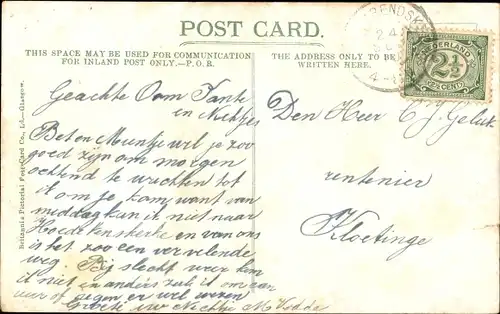 POST CARD.
THIS SPACE MAY BE USED FOR COMMUNICATION
FOR INLAND POST ONLY.—P.O.R.
THE ADDRESS ONLY TO BE
WRITTEN HERE.
NEDERLAND
2½
2½ CENT
24
Britannia Pictorial Post Card Co., Ld.—Glasgow.
Geachte Oom Tante
en Nichtjes
Bet en Muntje wil je zoo
goed zijn om morgen
ochtend te wachten tot
ik om je kom want van
middag kun ik niet naar
Hoedekenskerke en van ons
is het zoo een vervelende
weg. Bij slecht weer kom
ik niet en anders zal ik om aan
uur of negen er wel wezen
Groete uw Nichtje M
Den Heer C J. Geluk
rentenier
Kloetinge